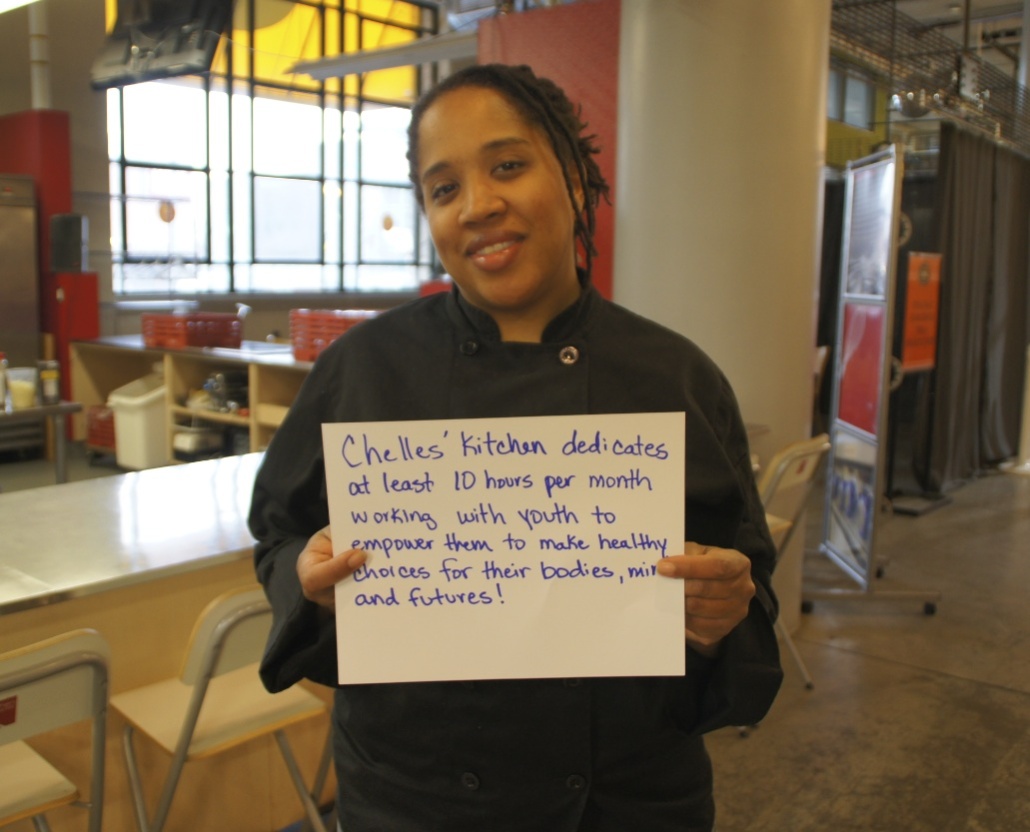 Chelles' Kitchen dedicates
at least 10 hours per month
working with youth to
empower them to make healthy
choices for their bodies,
and futures!